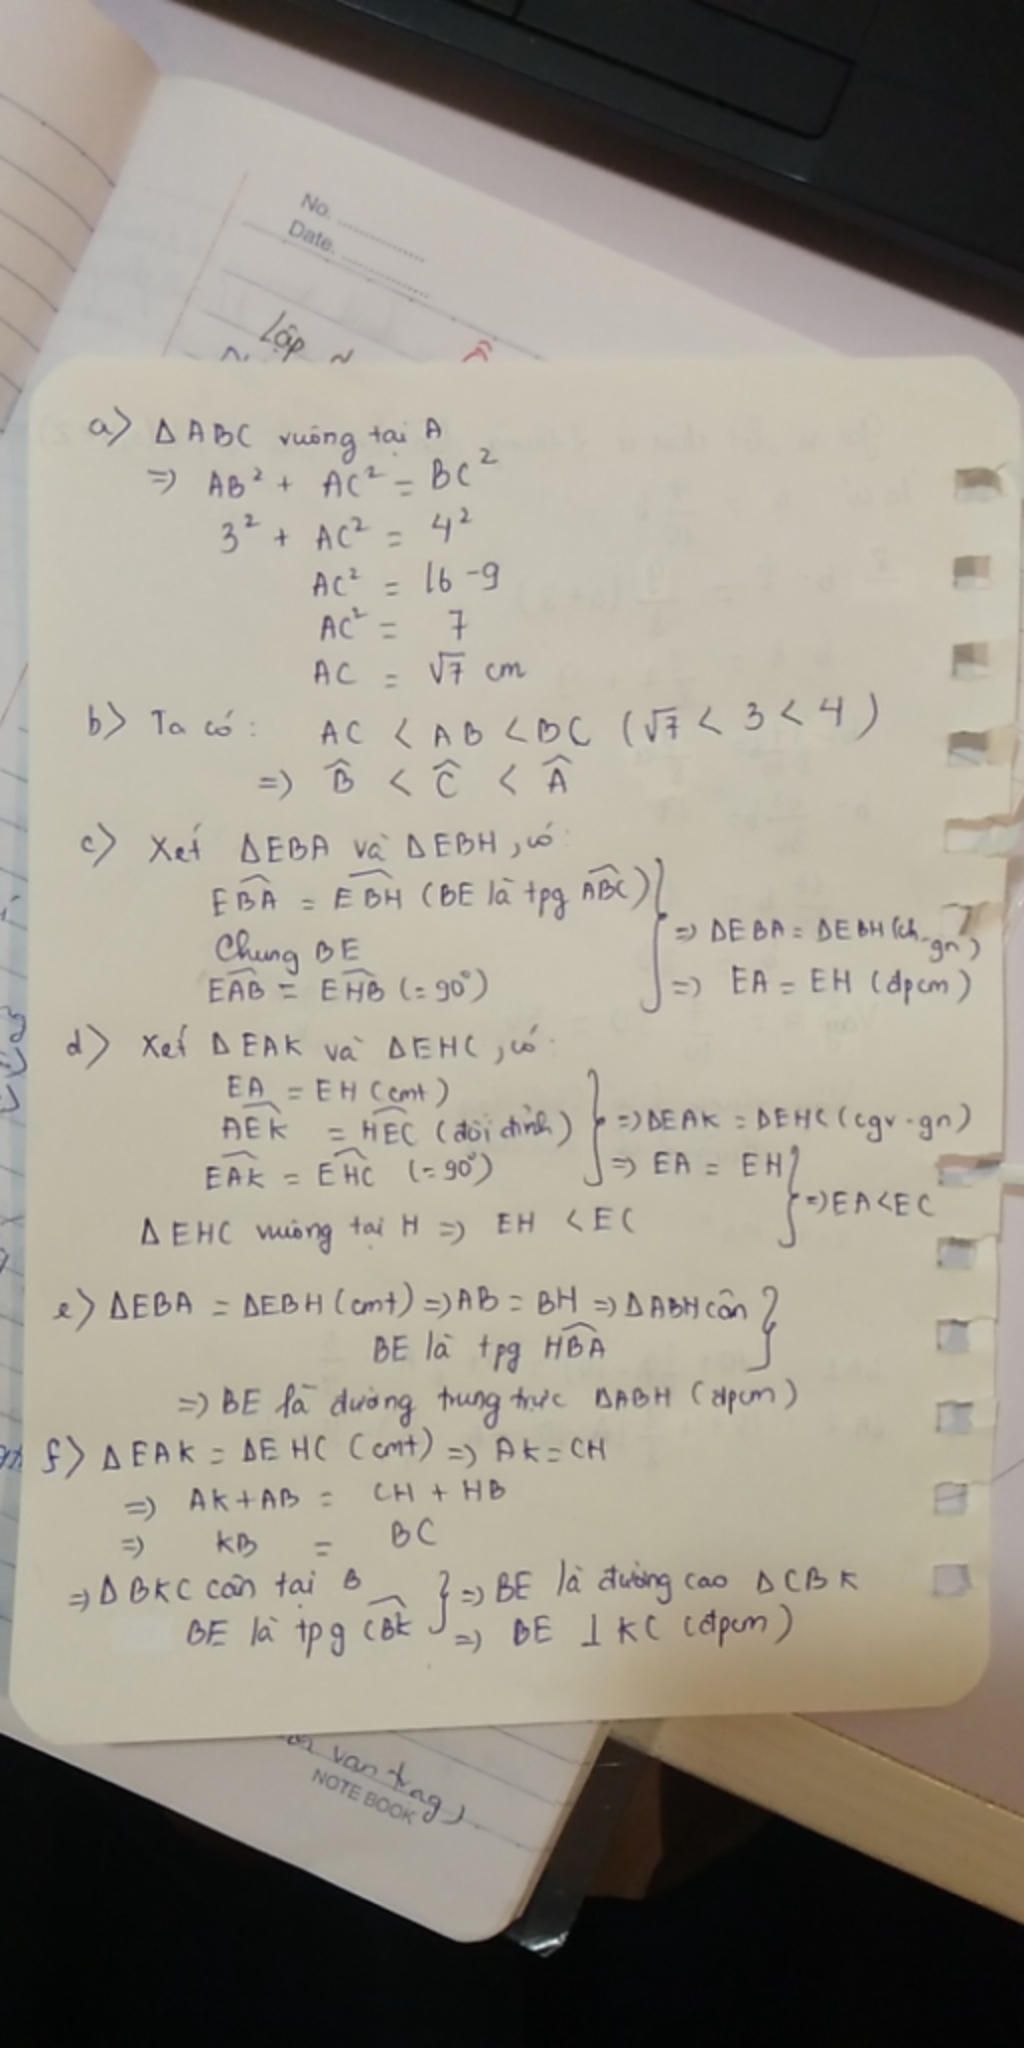 No.
Date.
Lập
a) Δ ABC vuông tại A
=> AB² + AC² = BC²
3² + AC² = 4²
AC² = 16 - 9
AC² = 7
AC = √7 cm
b) Ta có: AC < AB < BC (√7 < 3 < 4)
=> B̂ < Ĉ < Â
c) Xét ΔEBA và ΔEBH, có:
EB̂A = EB̂H (BE là tpg AB̂C)
Chung BE
=> ΔEBA = ΔEBH (ch-gn)
EÂB = EĤB (= 90°)
=> EA = EH (đpcm)
d) Xét ΔEAK và ΔEHC, có:
EA = EH (cmt)
AÊK = HÊC (đối đỉnh)
=> ΔEAK = ΔEHC (cgv-gn)
EÂK = EĤC (= 90°)
=> EA = EH
=> EA < EC
Δ EHC vuông tại H => EH < EC
e) ΔEBA = ΔEBH (cmt) => AB = BH => ΔABH cân
BE là tpg HB̂A
=> BE là đường trung trực ΔABH (đpcm)
f) ΔEAK = ΔEHC (cmt) => AK = CH
=> AK + AB = CH + HB
=> KB = BC
=> Δ BKC cân tại B
=> BE là đường cao ΔCBK
BE là tpg CB̂K
=> BE ⊥ KC (đpcm)
NOTE BOOK